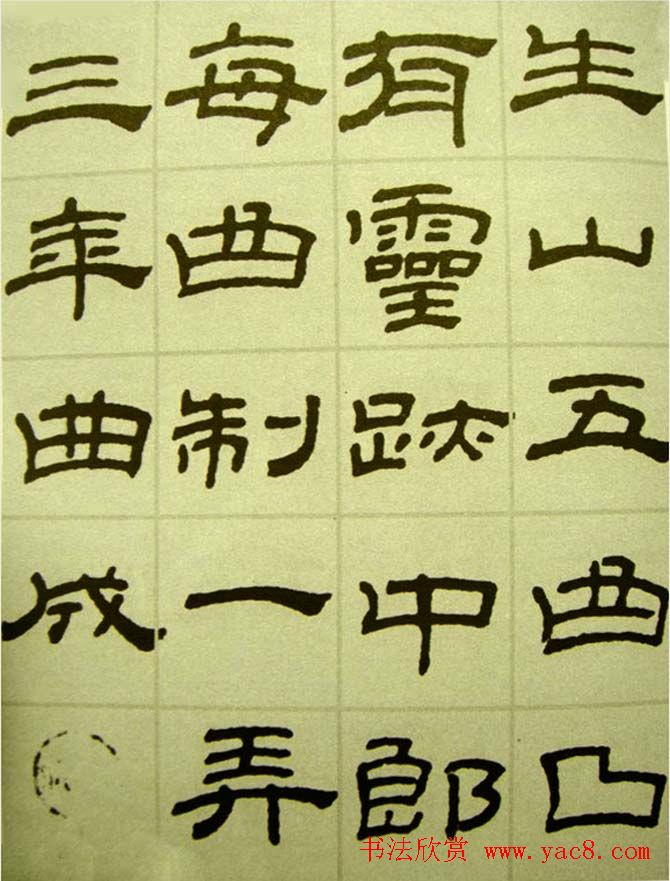 生山五曲曲
有靈跡中郎
每曲制一弄
三年曲成
书法欣赏 www.yac8.com